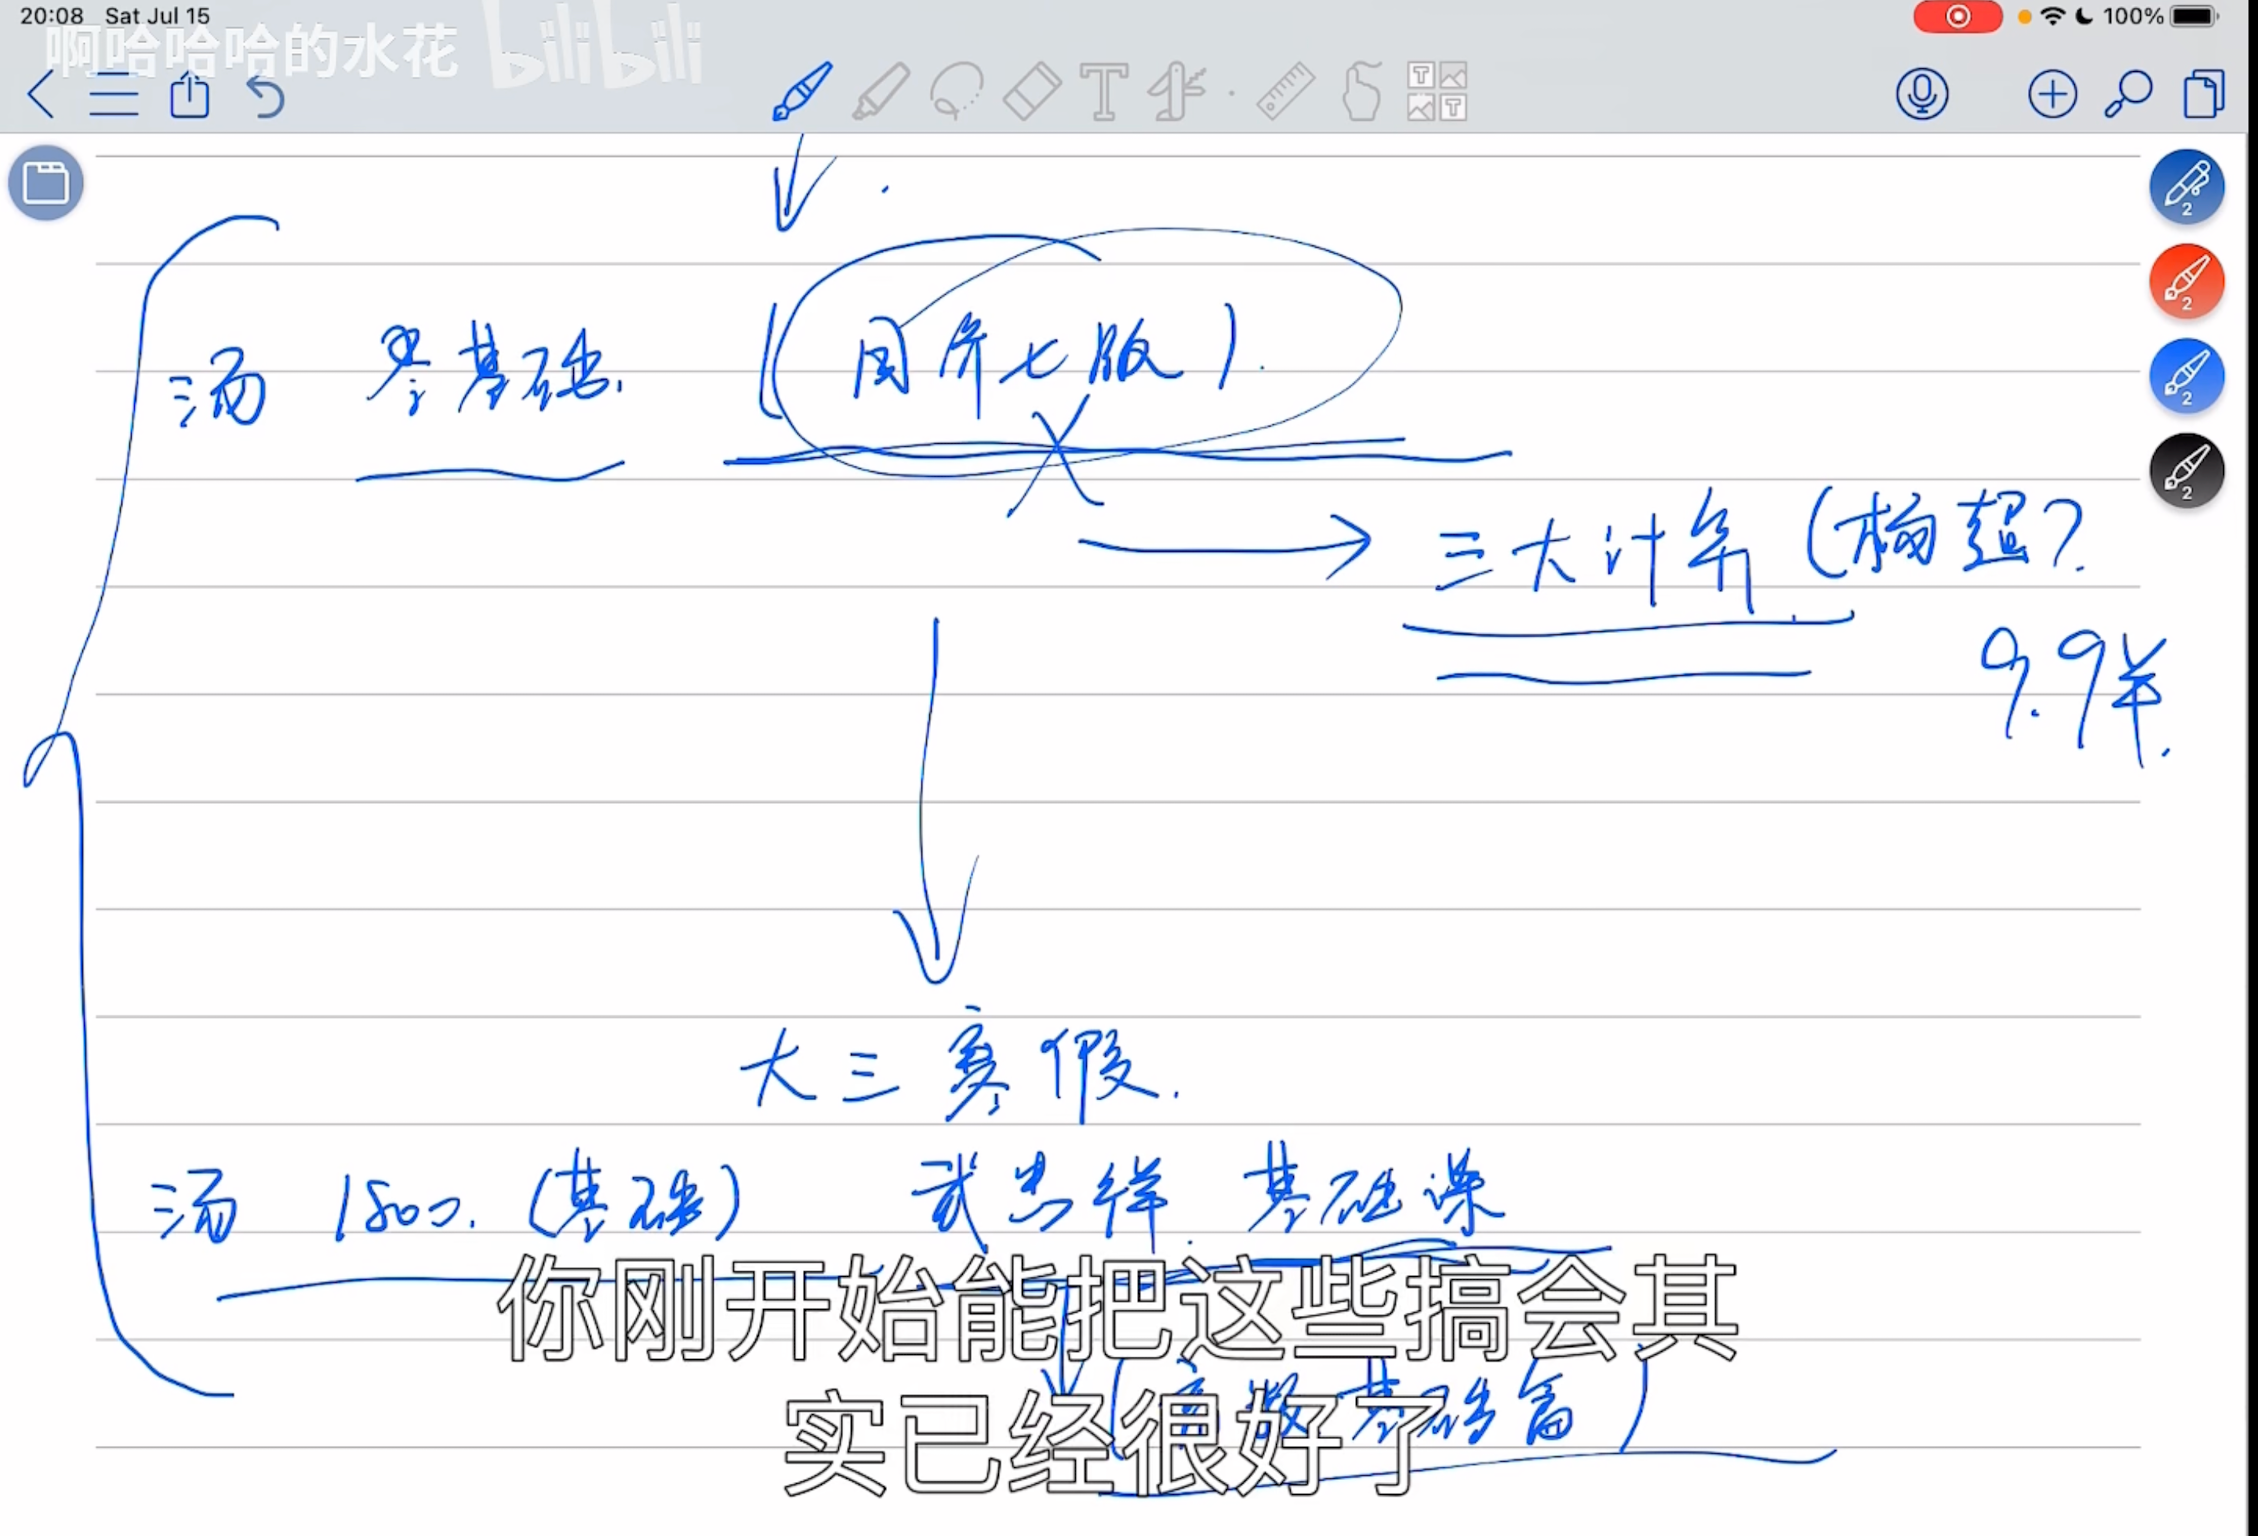 20:08 Sat Jul 15
100%
啊哈哈哈的水花 bilibili
汤 零基础. (同济七版).
三大计算 (杨超?
9.9¥.
大三寒假.
汤 1800. (基础) 武忠祥. 基础课
(高数基础篇)
你刚开始能把这些搞会其
实已经很好了